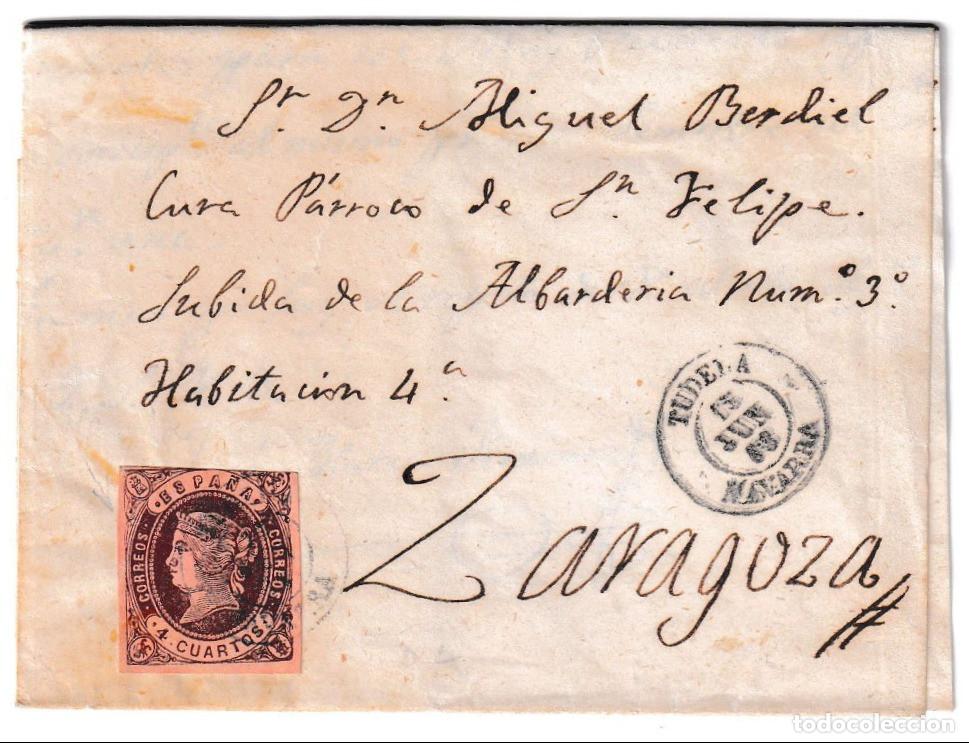 Sr. Dn. Miguel Berdiel
Cura Párroco de Sn. Felipe.
Subida de la Albarderia Num.º 3º.
Habitacion 4ª.
Zaragoza
TUDELA
JUN
63
NAVARRA
ESPAÑA
CORREOS
CORREOS
4 CUARTOS
todocoleccion